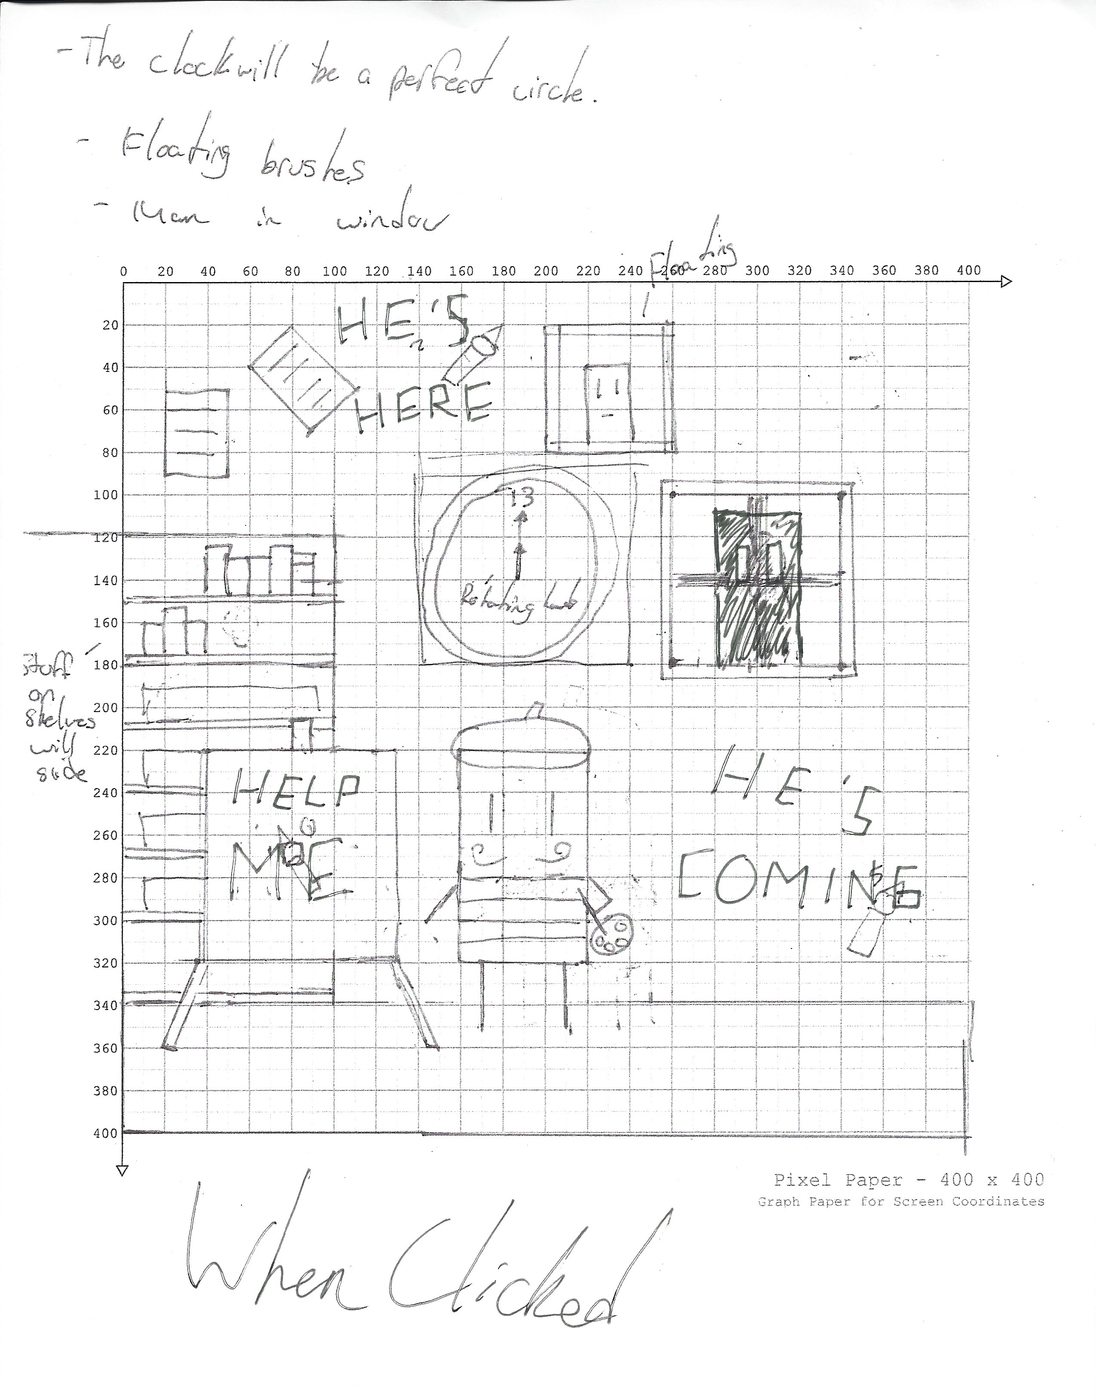 - The clock will be a perfect circle.
- Floating brushes
- Man in window
Floating
0 20 40 60 80 100 120 140 160 180 200 220 240 260 280 300 320 340 360 380 400
20
40
60
80
100
120
140
160
180
200
220
240
260
280
300
320
340
360
380
400
HE'S
HERE
13
Rotating
Stuff
on
shelves
will
slide
HELP
ME
HE'S
COMING
Pixel Paper - 400 x 400
Graph Paper for Screen Coordinates
When Clicked